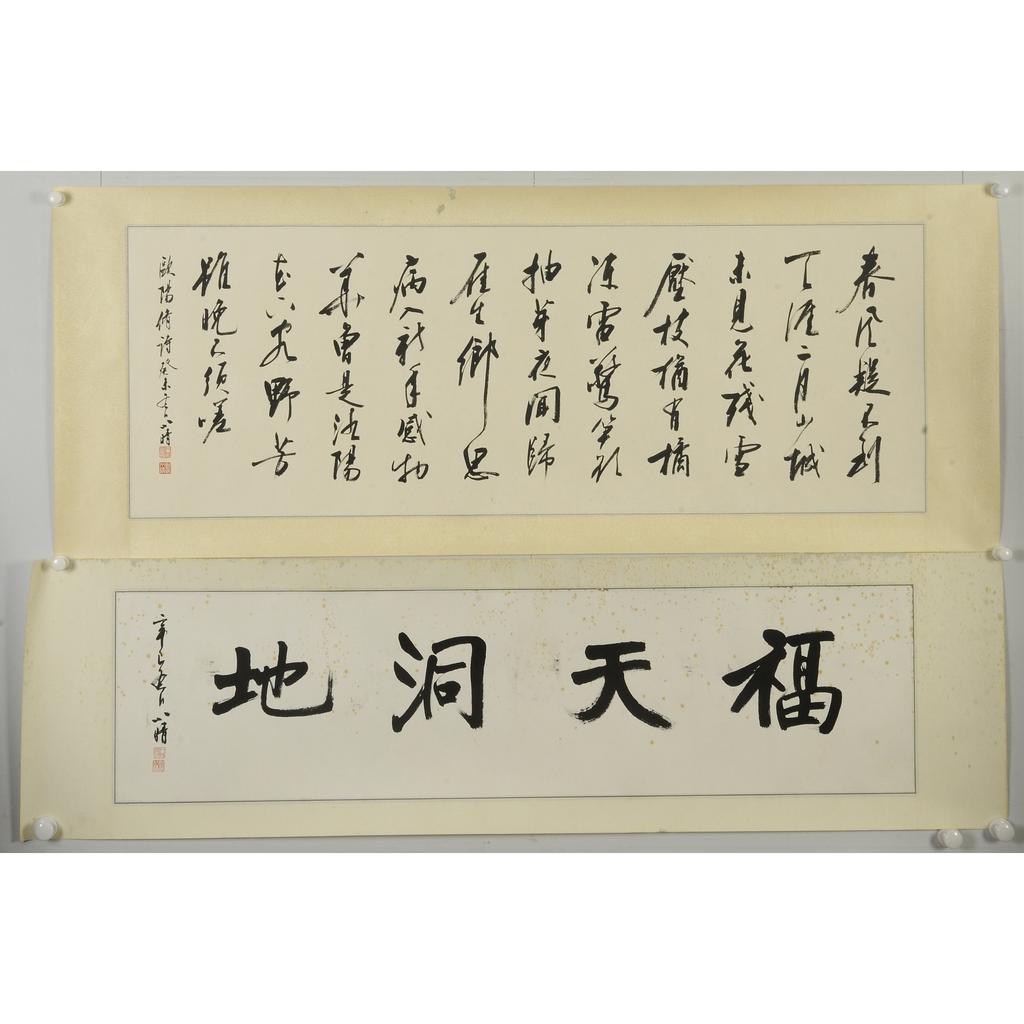 春風疑不到
天涯二月山城
未見花殘雪
壓枝猶有橘
凍雷驚筍欲
抽芽夜聞歸
雁生鄉思
病入新年感物
華曾是洛陽
花下客野芳
雖晚不須嗟
歐陽脩詩癸未八晴
福天洞地
辛巳八晴